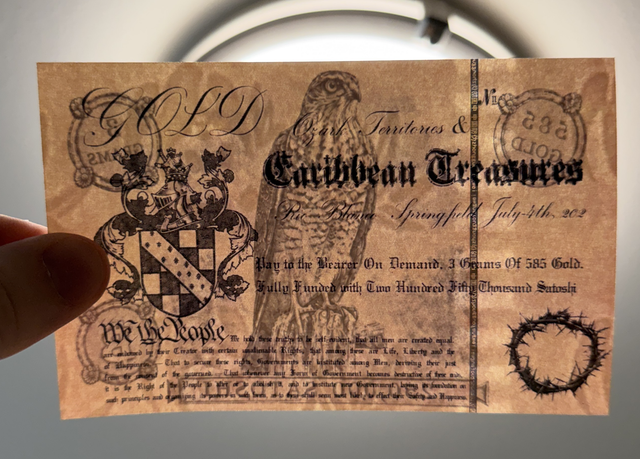 GOLD
Ozark Territories &
№
Caribbean Treasures
Rio Blanco Springfield July 4th, 202
Pay to the Bearer On Demand, 3 Grams Of 585 Gold.
Fully Funded with Two Hundred Fifty Thousand Satoshi
We the People
We hold these truths to be self-evident, that all men are created equal
are endowed by their Creator with certain unalienable Rights, that among these are Life, Liberty and the
of Happiness. — That to secure these rights, Governments are instituted among Men, deriving their just
of the governed, — That whenever any Form of Government becomes destructive of these
it is the Right of the People to alter or to abolish it, and to institute new Government, laying its foundation on
such principles and organizing its powers in such form, as to them shall seem most likely to effect their Safety and Happiness
585
GOLD
GRAMS